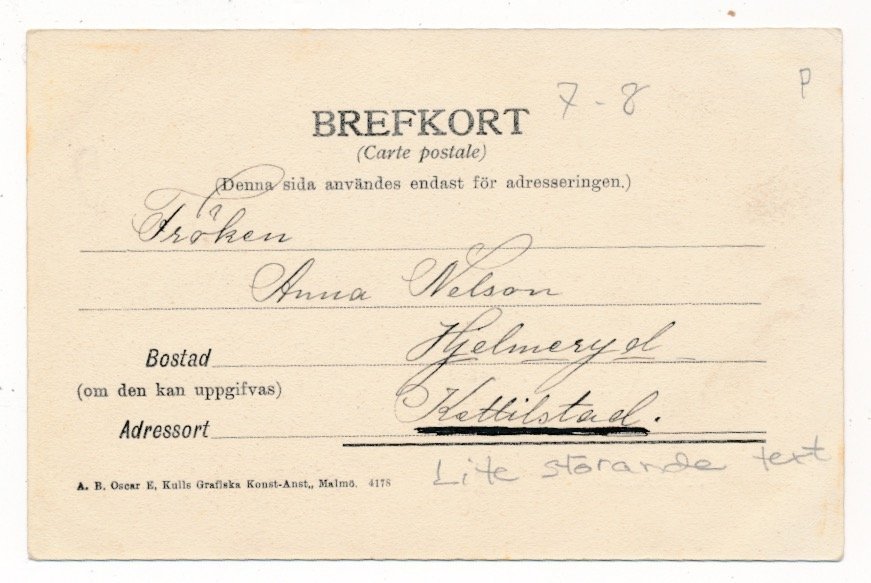 7-8
P
BREFKORT
(Carte postale)
(Denna sida användes endast för adresseringen.)
Fröken
Anna Nelson
Bostad Hjelmeryd
(om den kan uppgifvas)
Adressort Kettilstad.
A. B. Oscar E, Kulls Grafiska Konst-Anst,, Malmö. 4178
Lite störande text